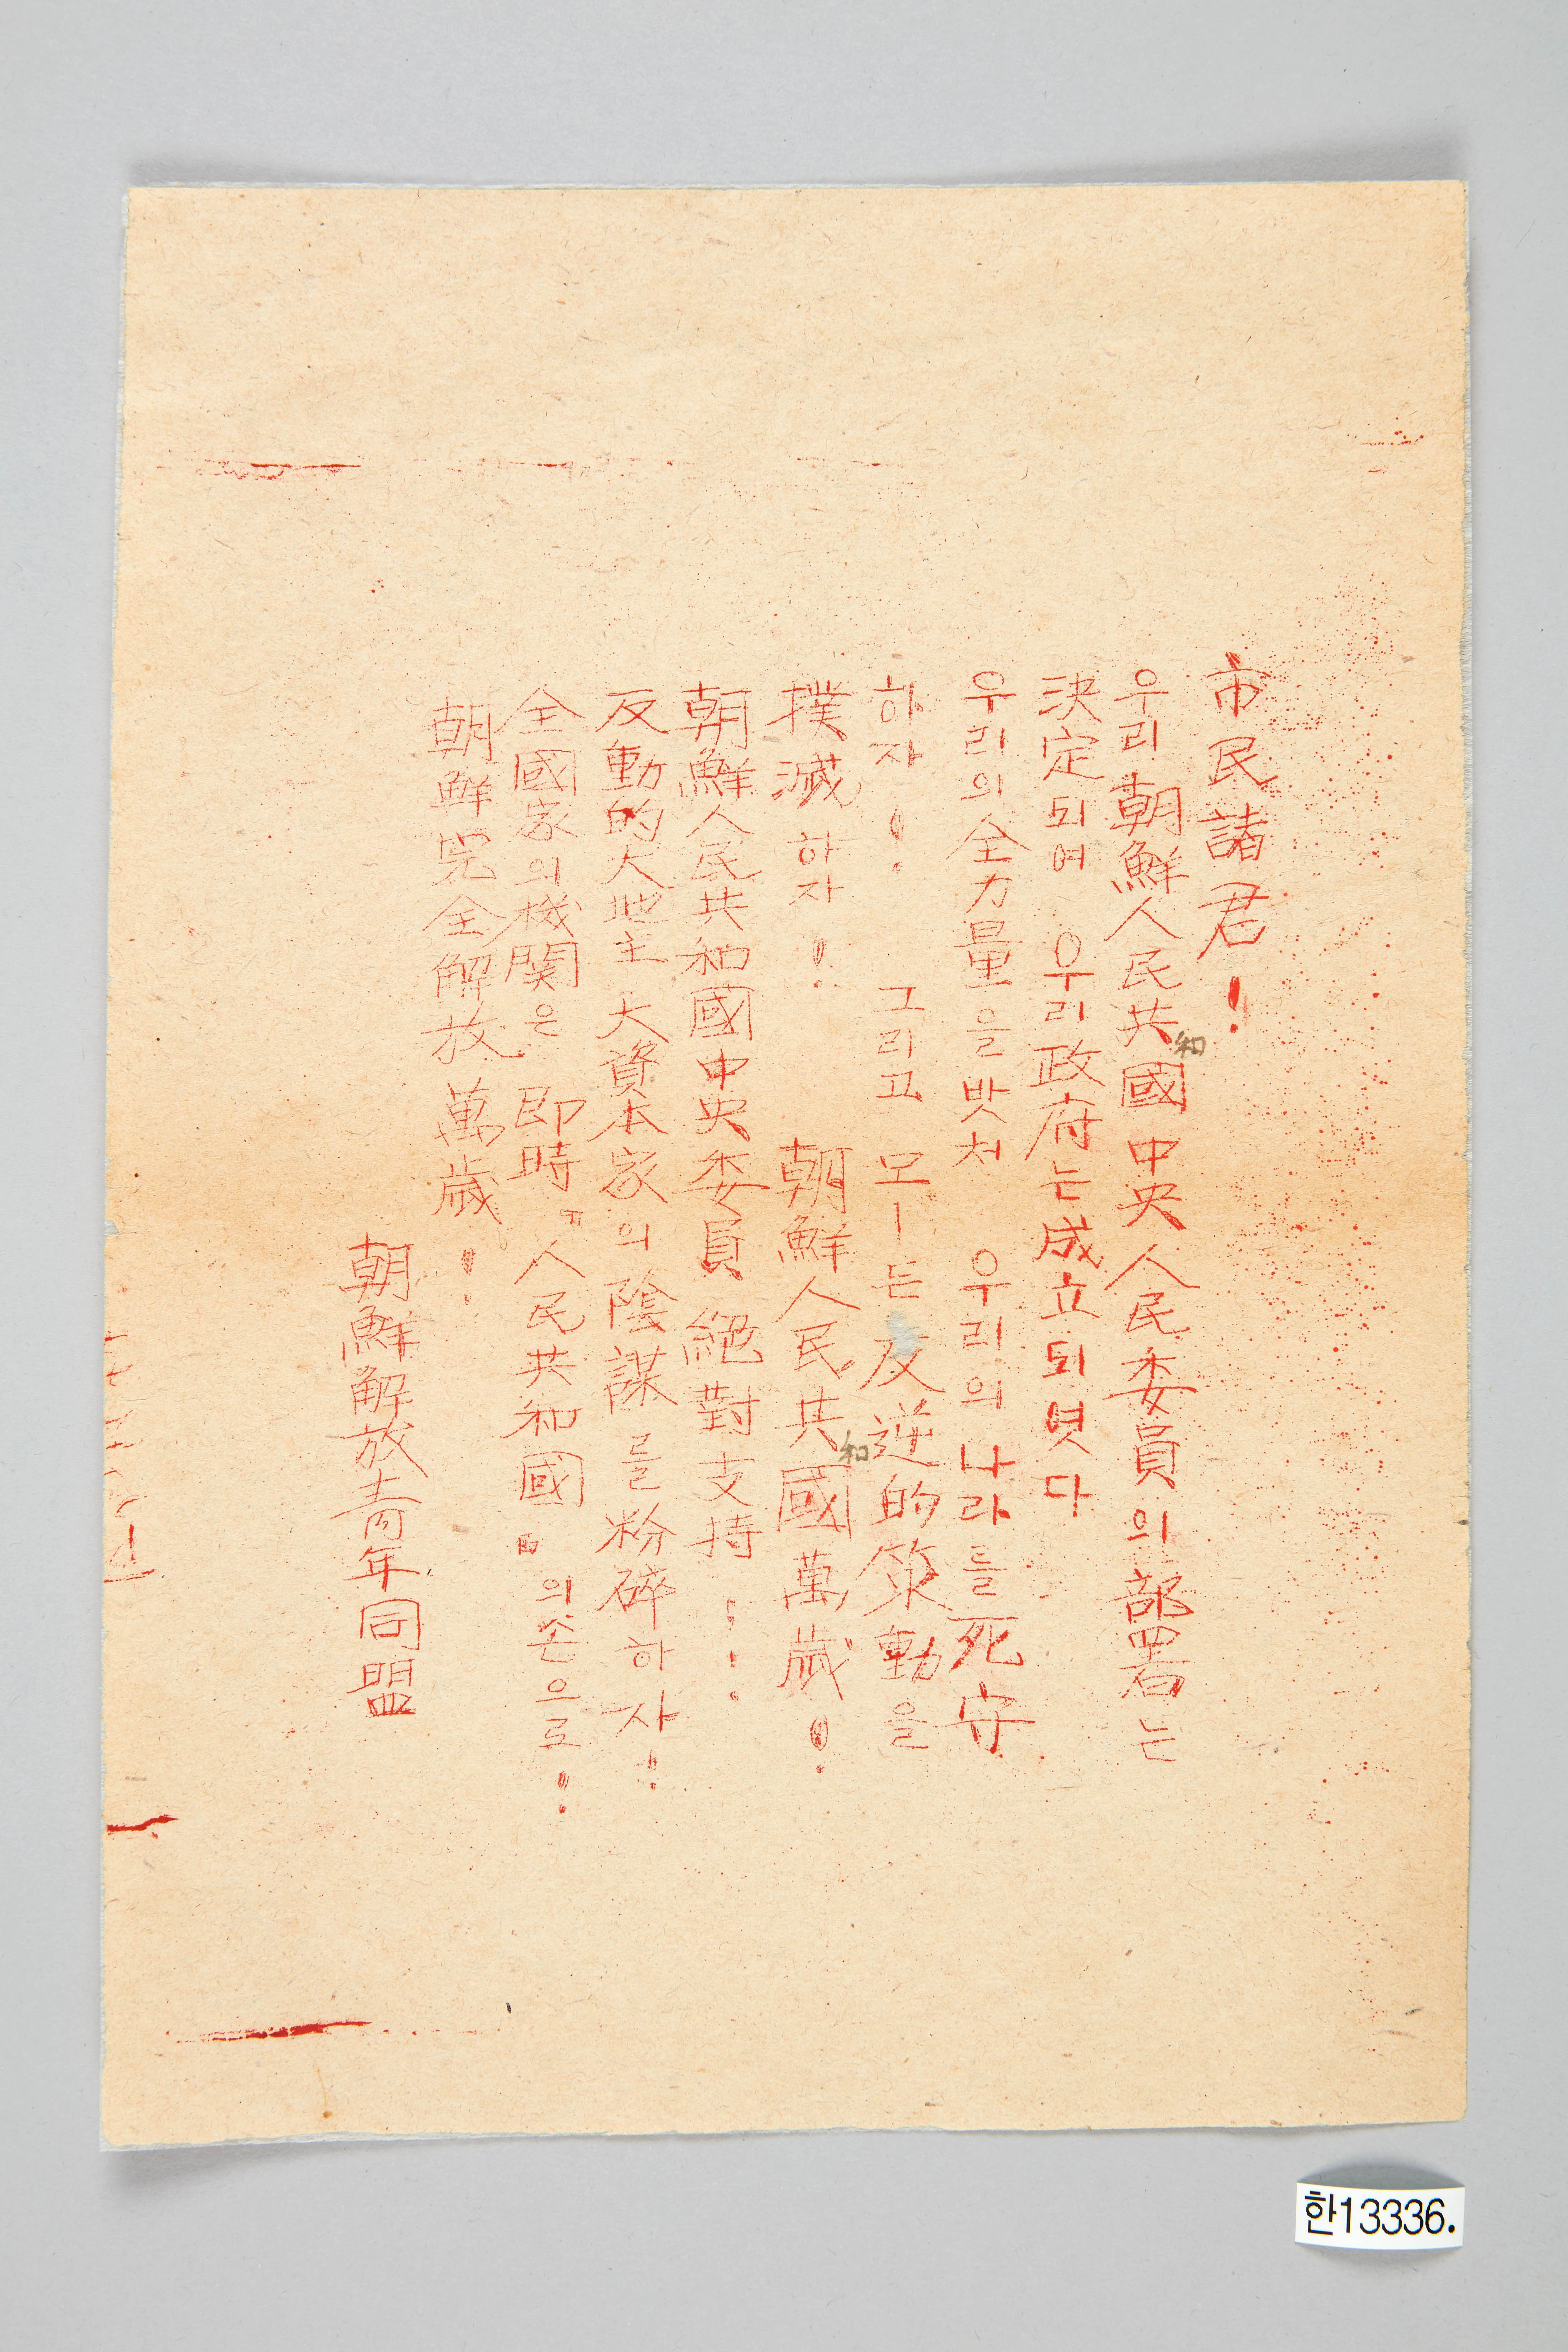 市民諸君!
우리朝鮮人民共和國 中央人民委員의部署는
決定되여 우리政府는成立되엿다
우리의全力量을밧처 우리의나라를死守
하자! 그리고 모ー든反逆的策動을
撲滅하자! 朝鮮人民共和國萬歲!
朝鮮人民共和國中央委員 絕對支持!!
反動的大地主 大資本家의陰謀를粉碎하자!
全國家의機関은 即時『人民共和國』의손으로!
朝鮮完全解放萬歲!
朝鮮解放靑年同盟
한13336.